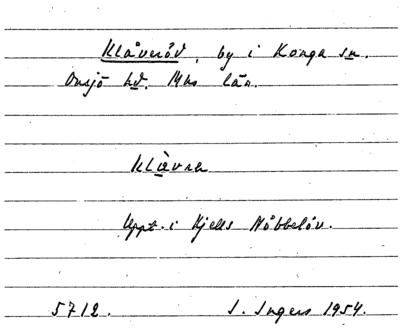 Klåveröd, by i Konga sn.
Onsjö hd. Mhs län.
klàvra
Uppt. i Kjells Nöbbelöv.
5712. I. Ingers 1954.